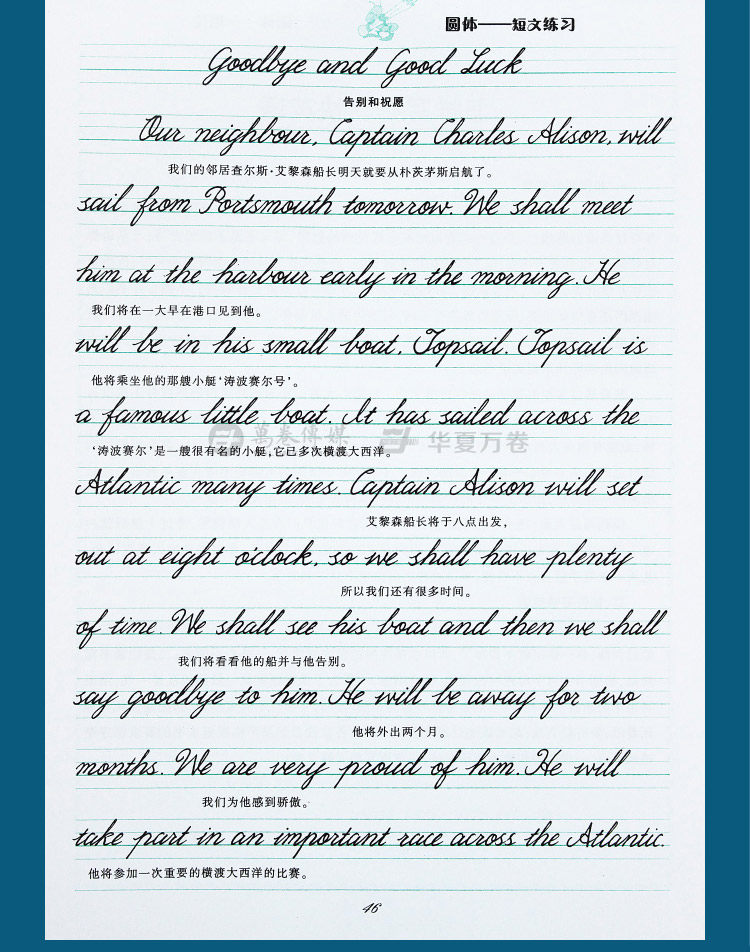 圆体——短文练习
Goodbye and Good Luck
告别和祝愿
Our neighbour, Captain Charles Alison, will
我们的邻居查尔斯·艾黎森船长明天就要从朴茨茅斯启航了。
sail from Portsmouth tomorrow. We shall meet
him at the harbour early in the morning. He
我们将在一大早在港口见到他。
will be in his small boat, Topsail. Topsail is
他将乘坐他的那艘小艇‘涛波赛尔号’。
a famous little boat. It has sailed across the
萬卷傳媒 华夏万卷
‘涛波赛尔’是一艘很有名的小艇,它已多次横渡大西洋。
Atlantic many times. Captain Alison will set
艾黎森船长将于八点出发,
out at eight o'clock, so we shall have plenty
所以我们还有很多时间。
of time. We shall see his boat and then we shall
我们将看看他的船并与他告别。
say goodbye to him. He will be away for two
他将外出两个月。
months. We are very proud of him. He will
我们为他感到骄傲。
take part in an important race across the Atlantic.
他将参加一次重要的横渡大西洋的比赛。
46